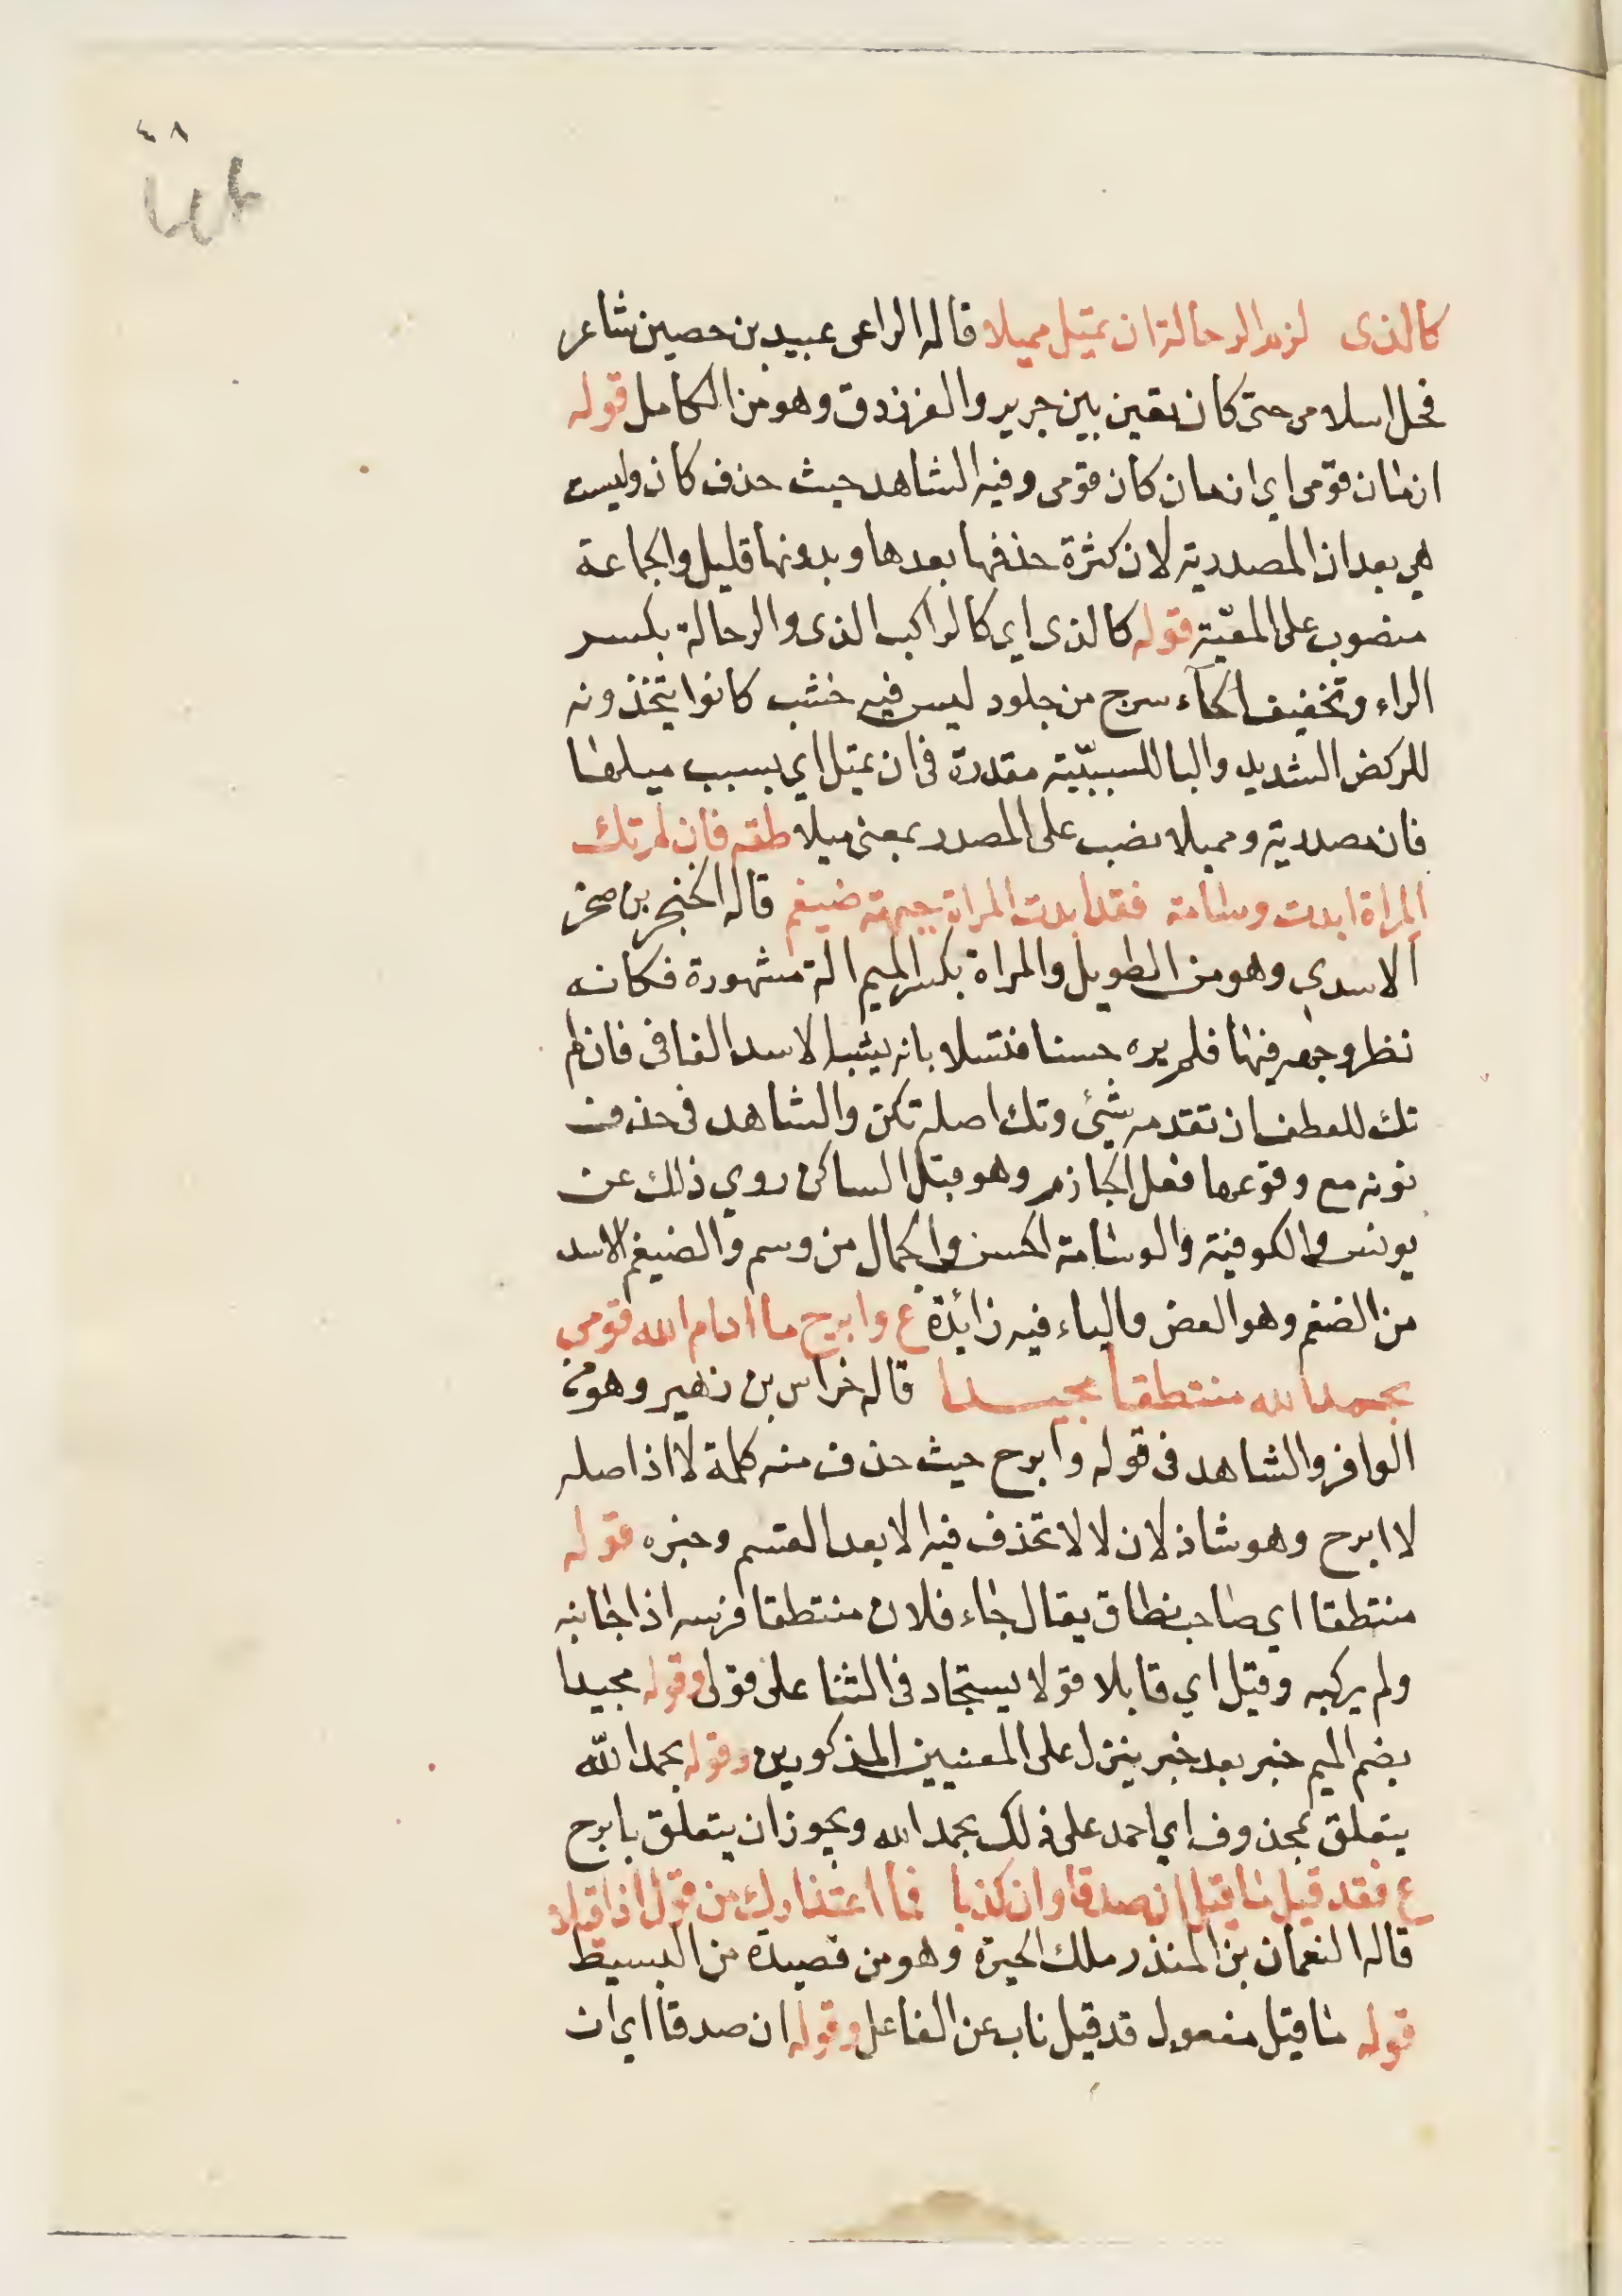 ٤٨
كالذى لزم الرحالة ان تميل مميلا قاله الراعى عبيد بن حصين شاعر
فحل اسلامى حتى كان يقين بين جرير والفرزدق وهو من الكامل قوله
ازمان قومى اى ازمان كان قومى وفيه الشاهد حيث حذف كان وليست
هي بعد ان المصدرية لان كثرة حذفها بعدها وبدونها قليل والجماعة
منصوب على المعيّة قوله كالذى اي كالراكب الذى والرحالة بكسر
الراء وتخفيف الحاء سرج من جلود ليس فيه خشب كانوا يتخذونه
للركض الشديد والبا للسببيّة مقدرة فى ان تميل اي بسبب ميلها
فان مصدرية ومميلا نصب على المصدر بمعنى ميلا طقه فان لم تك
المراة ابدت وسامة فقد ابدت المراة جبهة ضيغم قاله الخنجر بن صخر
الاسدي وهو من الطويل والمراة بكسر الميم الة مشهورة فكانه
نظر وجهه فيها فلم يره حسنا فتسلا بانه يشبه الاسد الفا فى فان لم
تك للعطف ان تقدمه شئ وتك اصله تكن والشاهد فى حذف
نونه مع وقوعها فعل الجازم وهو قبل الساكن روي ذلك عن
يونس والكوفية والوسامة الحسن والجمال من وسم والضيغم الاسد
من الضغم وهو العض والياء فيه زائدة ع وابرح ما ادام الله قومي
بحمد الله منتطقا مجيدا قاله خراس بن زهير وهو من
الوافر والشاهد فى قوله وابرح حيث حذف منه كلمة لا اذ اصله
لا ابرح وهو شاذ لان لا لا تحذف فيه الا بعد القسم وخبره قوله
منتطقا اي صاحب نطاق يقال جاء فلان منتطقا فرسه اذا جانبه
ولم يركبه وقيل اي قايلا قولا يستجاد فى الثنا على قولى وقوله مجيدا
بضم الميم خبر بعد خبر ينزل على المعنيين المذكورين وقوله بحمد الله
يتعلق بمحذوف اي احمد على ذلك بحمد الله ويجوز ان يتعلق بابرح
ع فقد قيل ما قيل ان صدقا وان كذبا فما اعتذارك من قول اذا قيلا
قاله النعمان بن المنذر ملك الحيرة وهو من قصيدة من البسيط
قوله ما قيل مفعول قد قيل ناب عن الفاعل وقوله ان صدقا اي ان